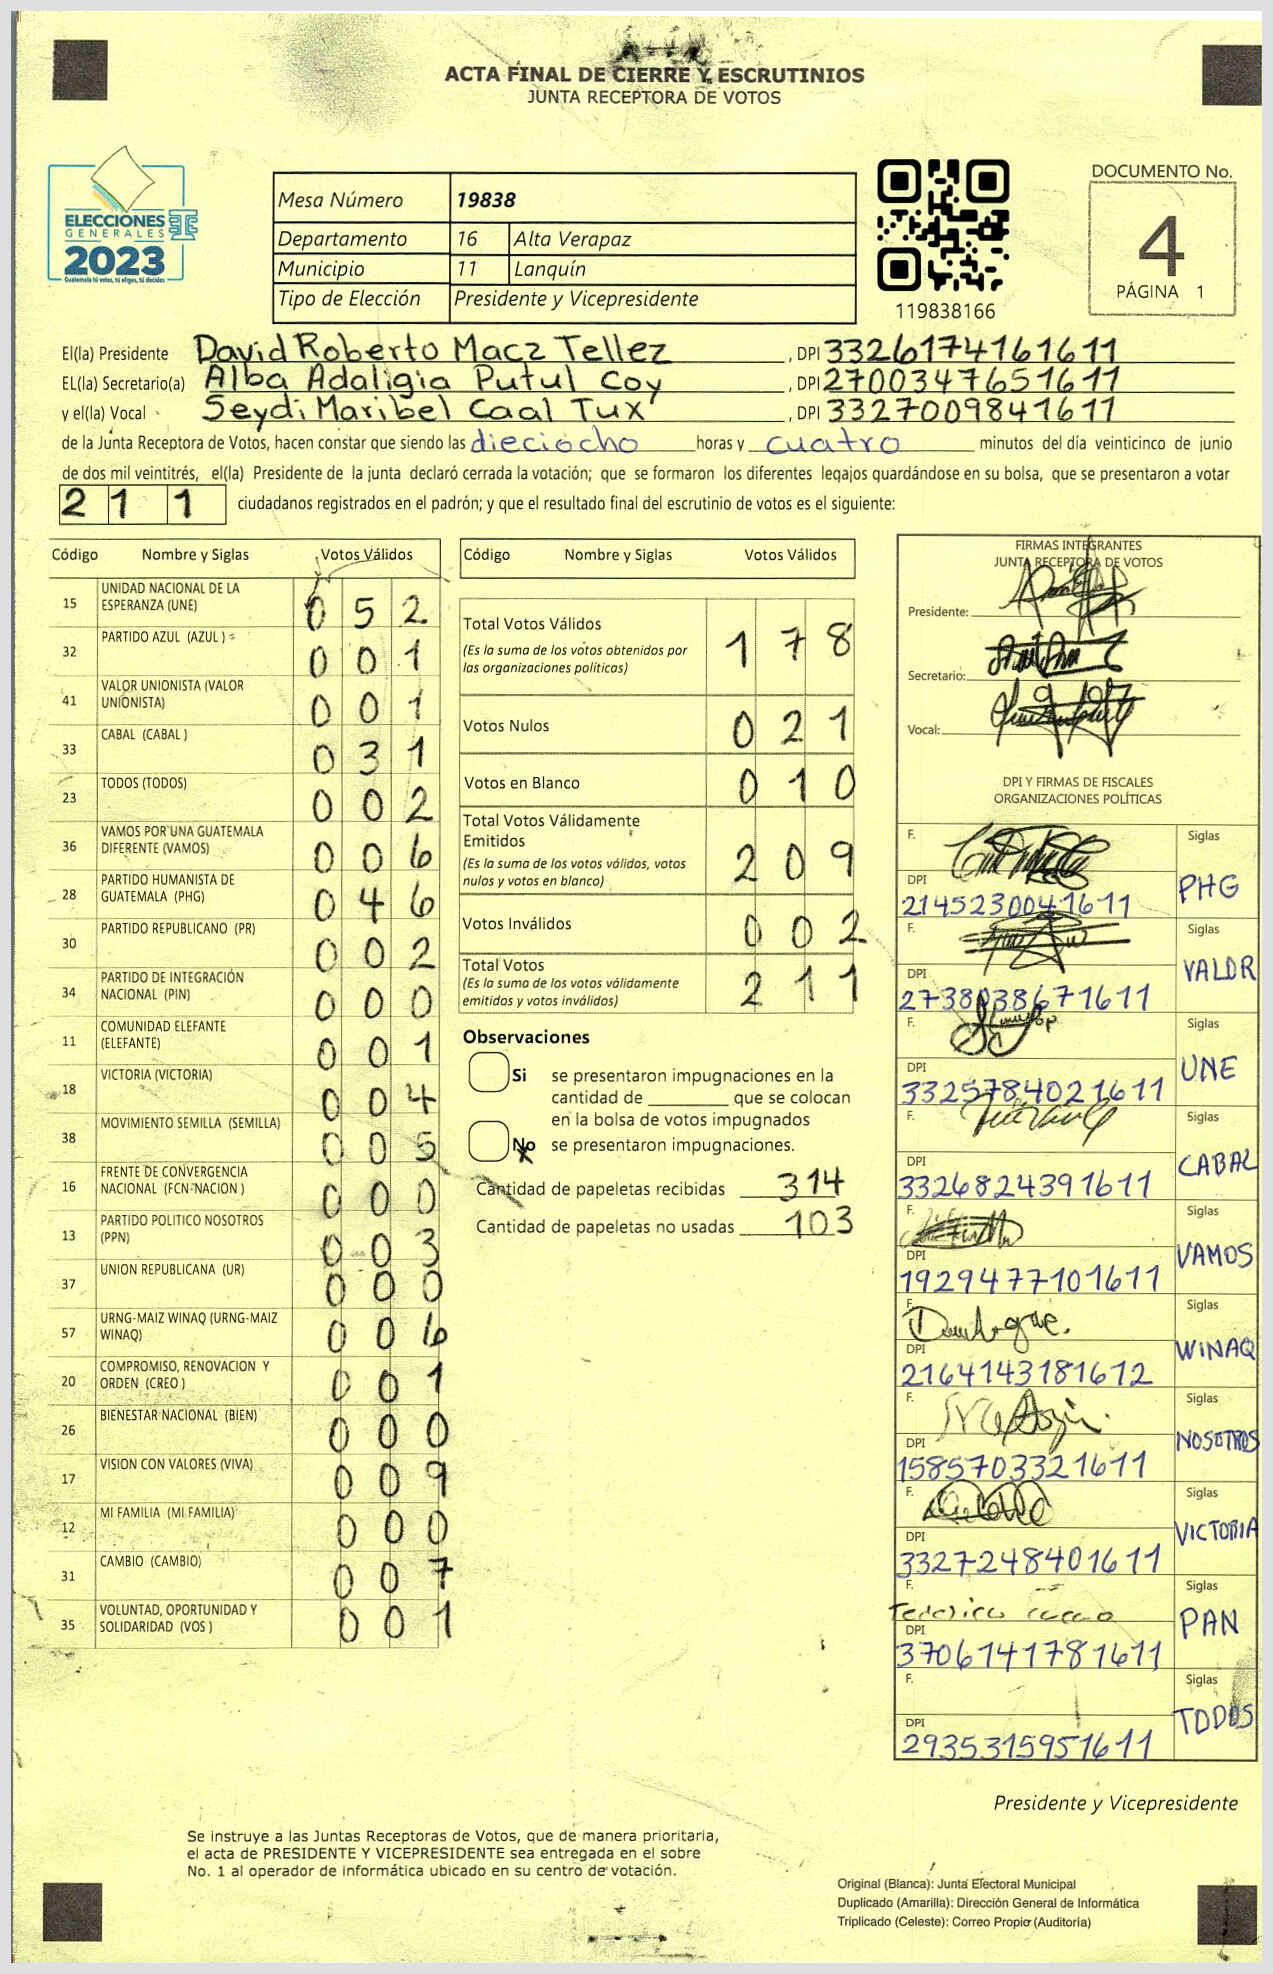 ACTA FINAL DE CIERRE Y ESCRUTINIOS
JUNTA RECEPTORA DE VOTOS
ELECCIONES
GENERALES
2023
Guatemala tú votas, tú eliges, tú decides
Mesa Número 19838
Departamento 16 Alta Verapaz
Municipio 11 Lanquín
Tipo de Elección Presidente y Vicepresidente
119838166
DOCUMENTO No.
4
PÁGINA 1
El(la) Presidente David Roberto Macz Tellez , DPI 3326174161611
EL(la) Secretario(a) Alba Adaligia Putul Coy , DPI 2700347651611
y el(la) Vocal Seydi Maribel Caal Tux , DPI 3327009841611
de la Junta Receptora de Votos, hacen constar que siendo las dieciocho horas y cuatro minutos del día veinticinco de junio
de dos mil veintitrés, el(la) Presidente de la junta declaró cerrada la votación; que se formaron los diferentes legajos guardándose en su bolsa, que se presentaron a votar
211 ciudadanos registrados en el padrón; y que el resultado final del escrutinio de votos es el siguiente:
Código Nombre y Siglas Votos Válidos
15 UNIDAD NACIONAL DE LA ESPERANZA (UNE) 052
32 PARTIDO AZUL (AZUL) 001
41 VALOR UNIONISTA (VALOR UNIONISTA) 001
33 CABAL (CABAL ) 031
23 TODOS (TODOS) 002
36 VAMOS POR UNA GUATEMALA DIFERENTE (VAMOS) 006
28 PARTIDO HUMANISTA DE GUATEMALA (PHG) 046
30 PARTIDO REPUBLICANO (PR) 002
34 PARTIDO DE INTEGRACIÓN NACIONAL (PIN) 000
11 COMUNIDAD ELEFANTE (ELEFANTE) 001
18 VICTORIA (VICTORIA) 004
38 MOVIMIENTO SEMILLA (SEMILLA) 005
16 FRENTE DE CONVERGENCIA NACIONAL (FCN-NACION ) 000
13 PARTIDO POLITICO NOSOTROS (PPN) 003
37 UNION REPUBLICANA (UR) 000
57 URNG-MAIZ WINAQ (URNG-MAIZ WINAQ) 006
20 COMPROMISO, RENOVACION Y ORDEN (CREO ) 001
26 BIENESTAR NACIONAL (BIEN) 000
17 VISION CON VALORES (VIVA) 009
12 MI FAMILIA (MI FAMILIA) 000
31 CAMBIO (CAMBIO) 007
35 VOLUNTAD, OPORTUNIDAD Y SOLIDARIDAD (VOS ) 001
Código Nombre y Siglas Votos Válidos
Total Votos Válidos 178
(Es la suma de los votos obtenidos por
las organizaciones políticas)
Votos Nulos 021
Votos en Blanco 010
Total Votos Válidamente
Emitidos 209
(Es la suma de los votos válidos, votos
nulos y votos en blanco)
Votos Inválidos 002
Total Votos 211
(Es la suma de los votos válidamente
emitidos y votos inválidos)
Observaciones
Si se presentaron impugnaciones en la
cantidad de ________ que se colocan
en la bolsa de votos impugnados
No se presentaron impugnaciones.
Cantidad de papeletas recibidas 314
Cantidad de papeletas no usadas 103
FIRMAS INTEGRANTES
JUNTA RECEPTORA DE VOTOS
Presidente:
Secretario:
Vocal:
DPI Y FIRMAS DE FISCALES
ORGANIZACIONES POLÍTICAS
F. Siglas
DPI 2145230041611 PHG
F. Siglas
DPI 2738038671611 VALOR
F. Siglas
DPI 3325784021611 UNE
F. Siglas
DPI 3326824391611 CABAL
F. Siglas
DPI 1929477101611 VAMOS
F. Siglas
DPI 2164143181612 WINAQ
F. Siglas
DPI 1585703321611 NOSOTROS
F. Siglas
DPI 3327248401611 VICTORIA
F. Siglas
DPI 3706141781611 PAN
F. Siglas
DPI 2935315951611 TODOS
Presidente y Vicepresidente
Se instruye a las Juntas Receptoras de Votos, que de manera prioritaria,
el acta de PRESIDENTE Y VICEPRESIDENTE sea entregada en el sobre
No. 1 al operador de informática ubicado en su centro de votación.
Original (Blanca): Junta Electoral Municipal
Duplicado (Amarilla): Dirección General de Informática
Triplicado (Celeste): Correo Propio (Auditoría)